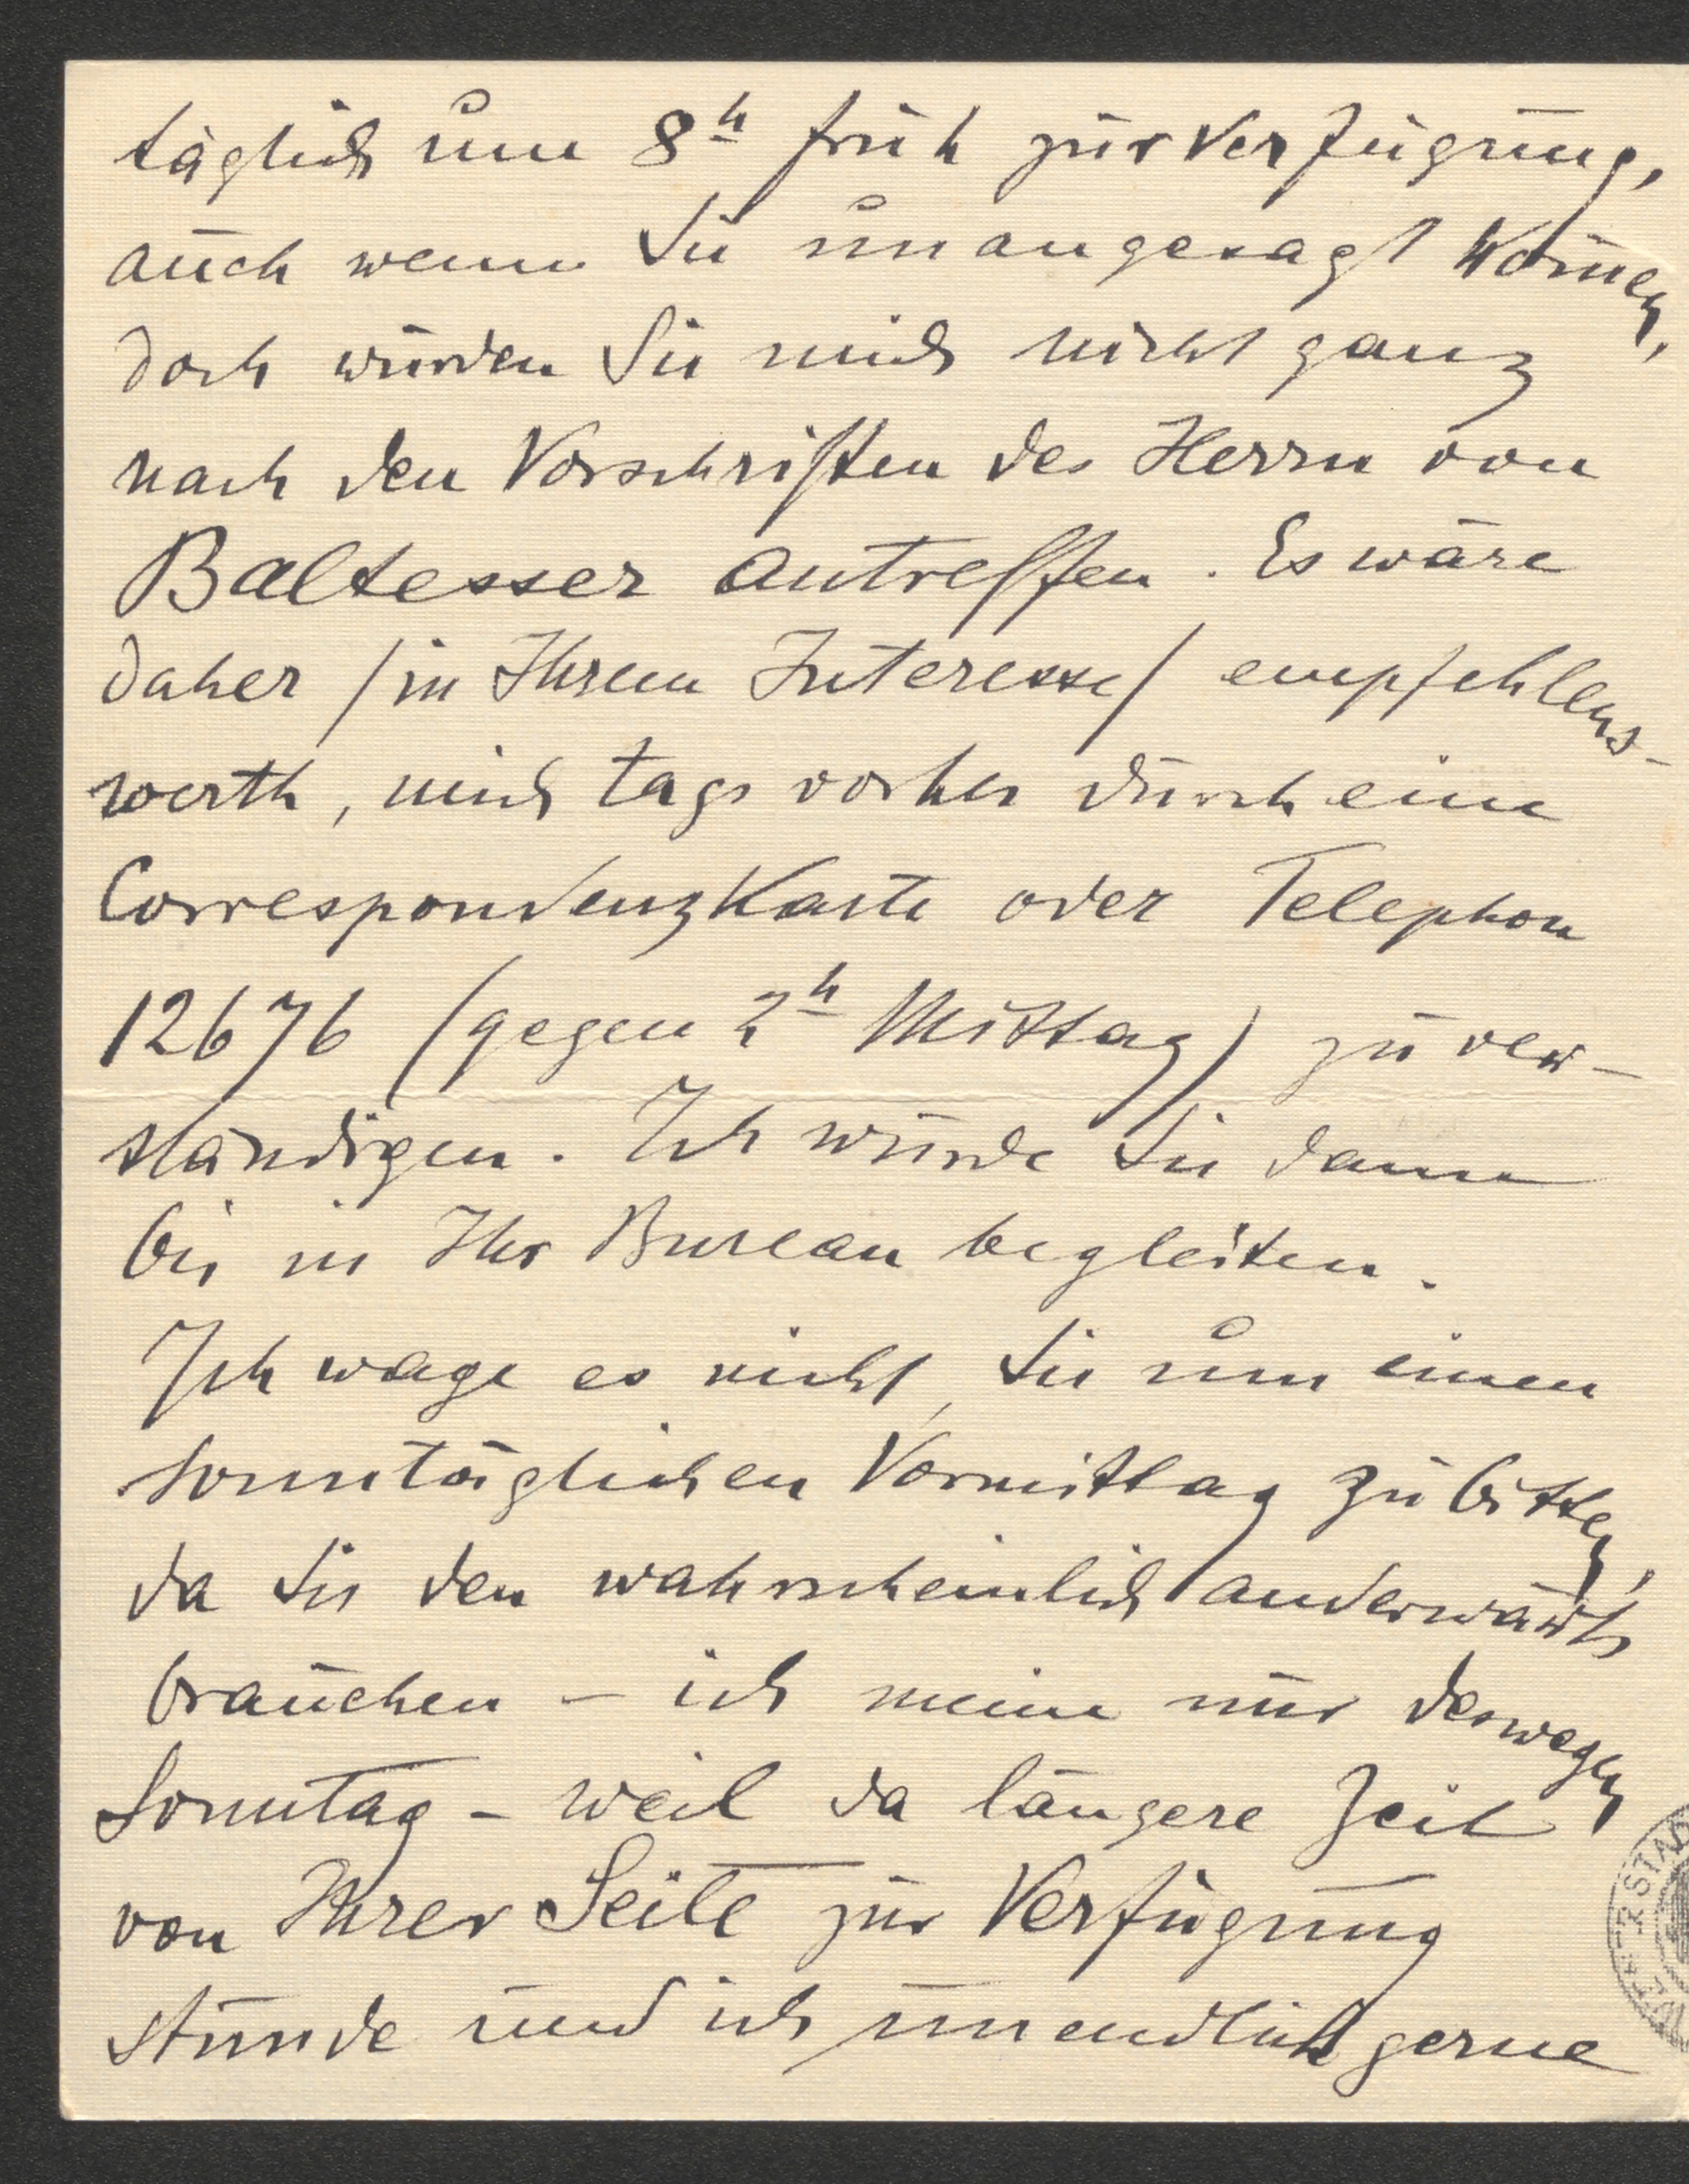 täglich um 8h früh zur Verfügung,
auch wenn Sie unangesagt kom̄en,
doch würden Sie mich nicht ganz
nach den Vorschriften des Herrn von
Baltesser antreffen. Es wäre
daher /in Ihrem Interesse/ empfehlens-
werth, mich tags vorher durch eine
Correspondenzkarte oder Telephon
12676 (gegen 2h Mittag) zu ver-
ständigen. Ich würde Sie dann
bis in Ihr Bureau begleiten.
Ich wage es nicht, Sie um einen
sonntäglichen Vormittag zu bitten,
da Sie den wahrscheinlich anderwärts
brauchen – ich meine nur deswegen
Sonntag – weil da längere Zeit
von Ihrer Seite zur Verfügung
stünde und ich unendlich gerne